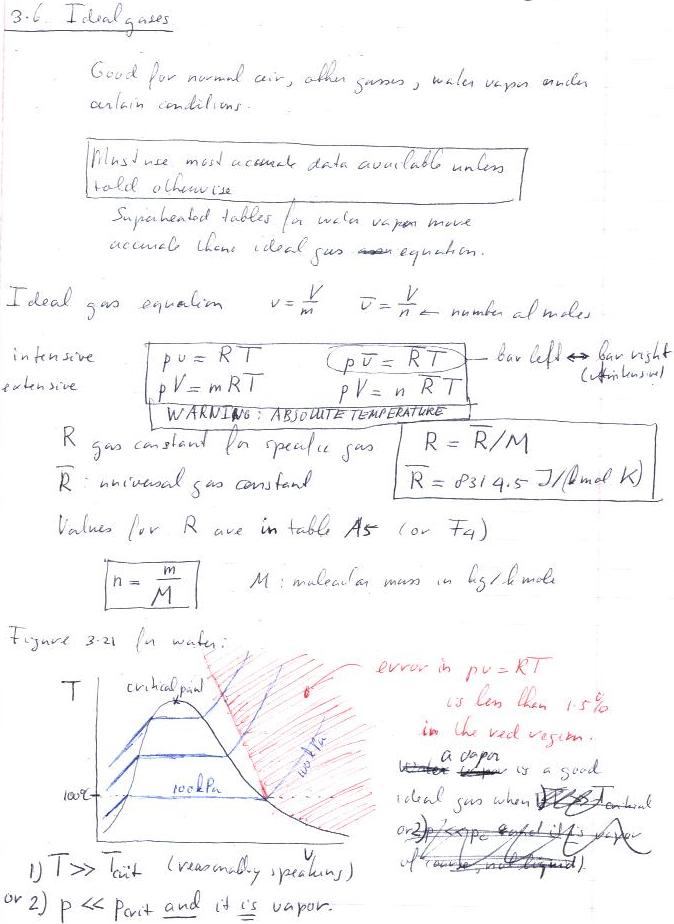 3.6. Ideal gases
Good for normal air, other gasses, water vapor under
certain conditions.
Must use most accurate data available unless
told otherwise
Superheated tables for water vapor more
accurate than ideal gas equation.
Ideal gas equation v = V/m v̄ = V/n ← number of moles
intensive pv = RT pv̄ = R̄T bar left ↔ bar right
extensive pV = mRT pV = n R̄T (intensive)
WARNING: ABSOLUTE TEMPERATURE
R gas constant for specific gas R = R̄/M
R̄ : universal gas constant R̄ = 8314.5 J/(kmol K)
Values for R are in table A5 (or F4)
n = m/M M : molecular mass in kg/kmole
Figure 3-21 for water:
T critical point error in pv = RT
is less than 1.5%
in the red region.
100kPa
a vapor
is a good
100kPa
100°C ideal gas when
or 2)
v
1) T >> Tcrit (reasonably speaking)
or 2) p << pcrit and it is vapor.